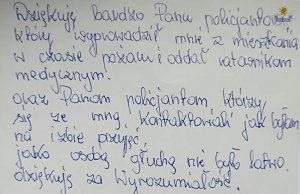 Dziękuję bardzo Panu policjantowi
który wyprowadził mnie z mieszkania
w czasie pożaru i oddał ratownikom
medycznym.
oraz Panom policjantom którzy
się ze mną kontaktowali jak byłam
na izbie przyjęć
jako osobą głuchą nie było łatwo.
dziękuję za wyrozumiałość.